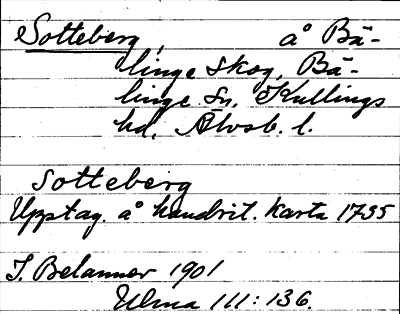 Sotteberg, å Bä-
linge skog, Bä-
linge sn, Kullings
hd, Älvsb. l.
Sotteberg
Upptag. å handrit. karta 1795
I. Belanner 1901
Ulma 111: 136.